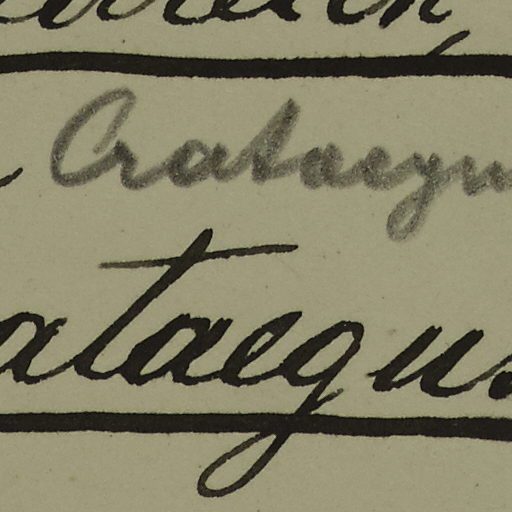 Crataegu
ataegus